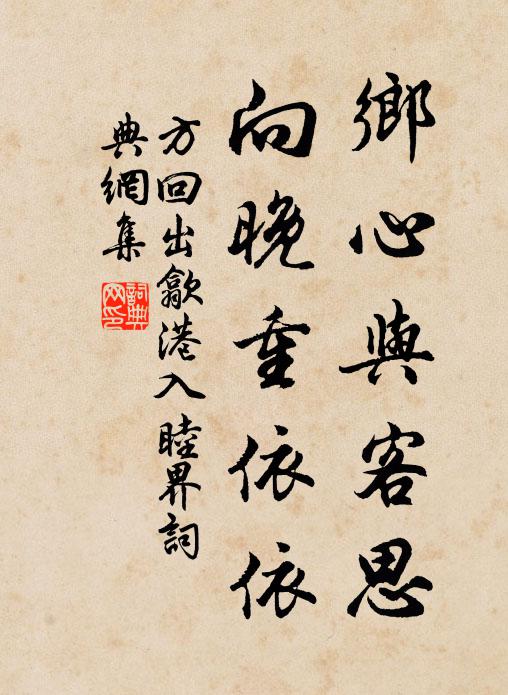 鄉心與客思
向晚重依依
方回出歙港入睦界詞
典網集
詞典
网印